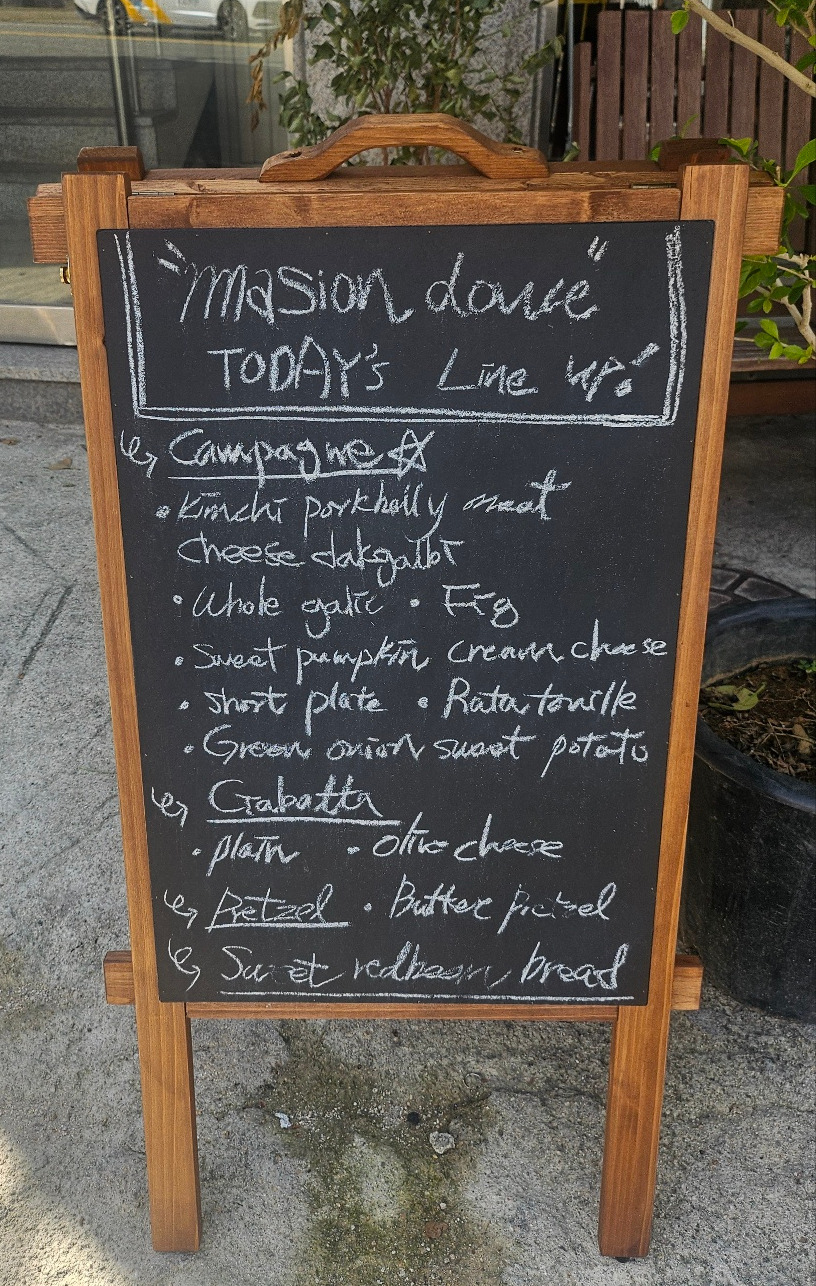 "Masion douce"
TODAY's Line up!
Campagne
• Kimchi porkbelly meat
cheese dakgalbi
• Whole galic • Fig
• Sweet pumpkin cream cheese
• short plate • Ratatouille
• Green onion sweet potato
Ciabatta
• plain • olive cheese
Pretzel • Butter pretzel
Sweet redbean bread